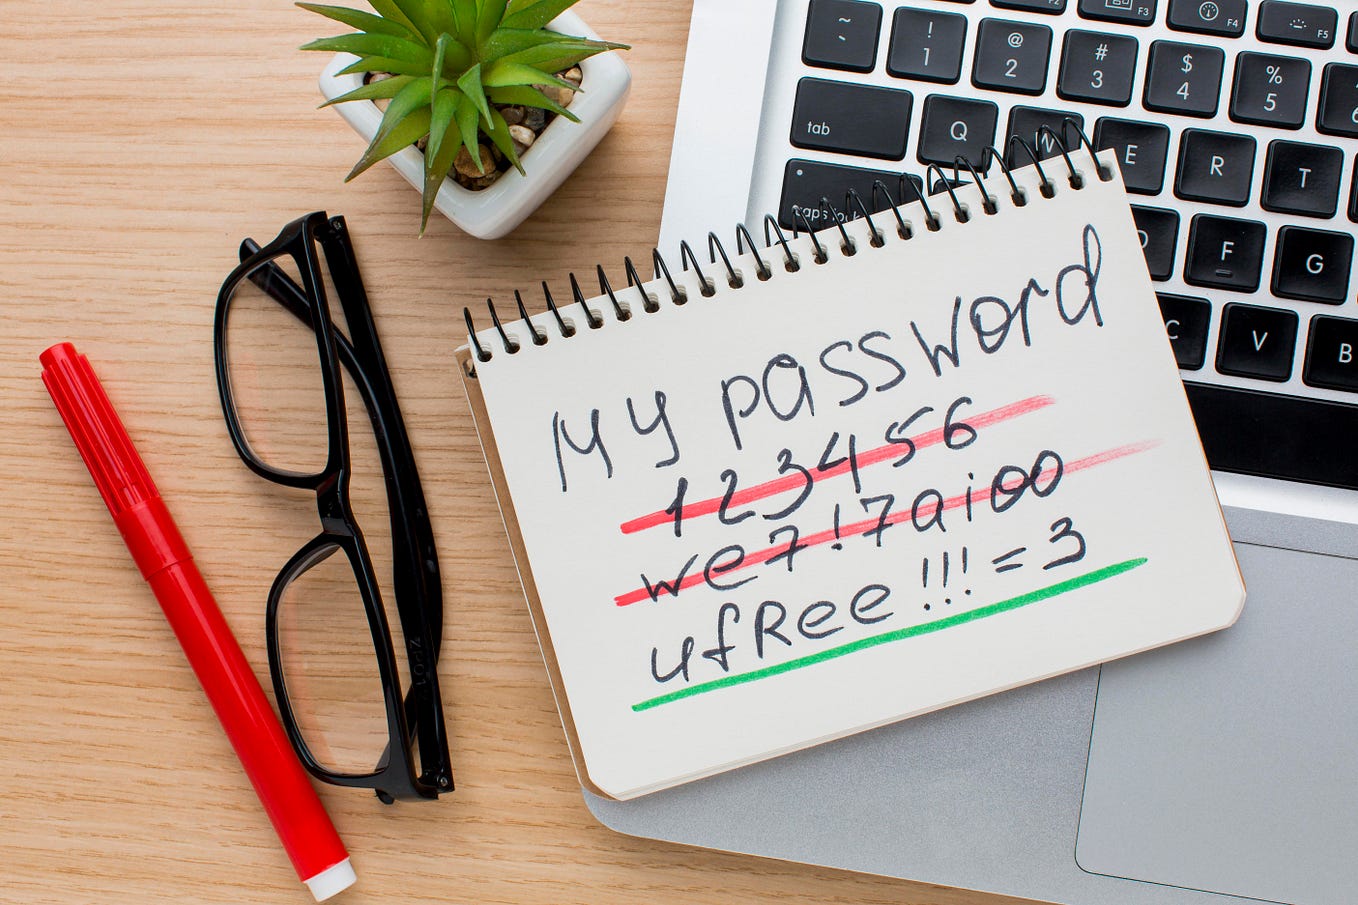 ~ ! @ # $ %
` 1 2 3 4 5
F3 F4 F5
tab Q W E R T
caps lock F G
C V B
My password
123456
we7!7aioo
ufRee!!!=3